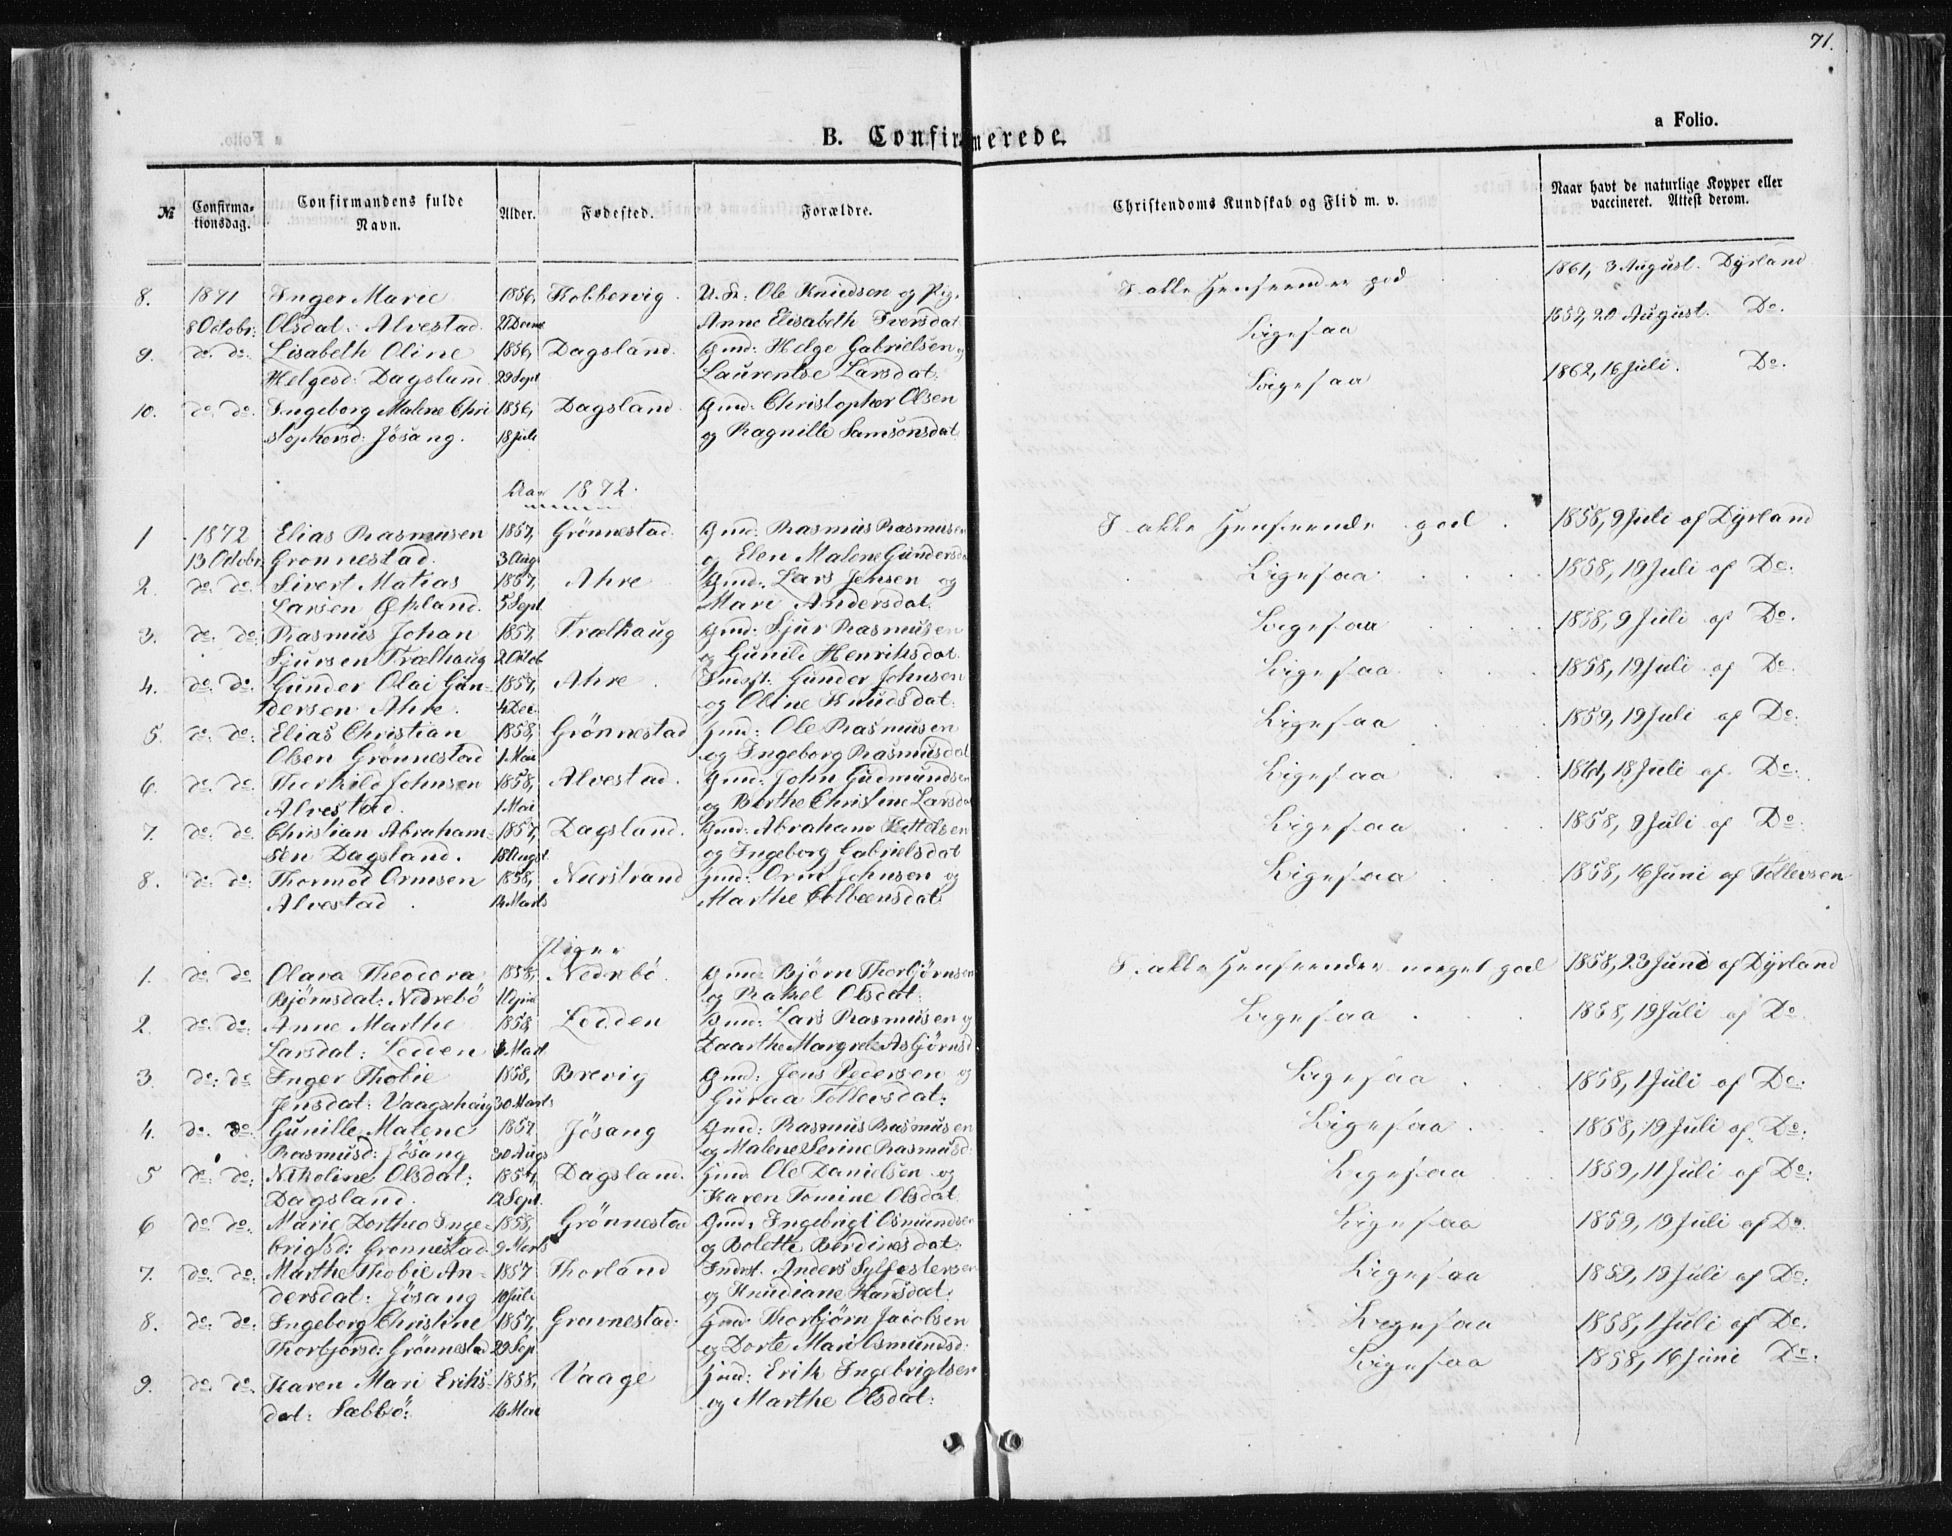 71.
a Folio.
B. Confirmerede.
№ Confirmationsdag. Confirmandens fulde Navn. Alder. Fødested. Forældre. Christendoms Kundskab og Flid m. v. Naar havt de naturlige Kopper eller vaccineret. Attest derom.
8. 1871 Inger Marie 1856, Kobbervig. Ole Knudsen og Pig. I alle Henseender god 1861, 3 August. Dyrland
8 Octobr: Olsdat: Alvestad. Anne Elisabeth Iversdat
9. do. do. Lisabeth Oline 1856, Dagsland. Gmd: Helge Gabrielsen og Ligesaa 1859, 20 August. Do.
Helgesd: Dagsland 29 Sept Laurentse Larsdat:
10. do. do. Ingeborg Malene Chri 1856, Dagsland. Gmd: Christopher Olsen Ligesaa 1862, 16 Juli. Do.
stophersd: Jøsang. 18 Juli og Ragnille Samsonsdat.
Aar 1872.
1 1872 Elias Rasmusen 1857, Grønnestad. Gmd: Rasmus Rasmusen I alle Henseende god. 1858, 9 Juli af Dyrland
13 Octobr Grønnestad. 3 Aug og Elen Malene Gundersda
2. do: do: Sivert Matias 1857, Ahre Gmd: Lars Jensen og Ligesaa 1858, 19 Juli af Do.
Larsen Økland. 5 Sept Mari Andersdat.
3. do: do: Rasmus Johan 1857, Trælhaug Gmd: Sjur Rasmusen Ligesaa 1858, 9 Juli af Do.
Sjursen Trælhaug 2 Octob og Gunild Henriksdat.
4. do: do: Gunder Olai Gun- 1857, Ahre. Indst: Gunder Johnsen Ligesaa 1858, 19 Juli af Do.
dersen Ahre. 4 Dec. og Oline Knudsdat:
5. do: do: Elias Christian 1858, Grønnestad Gmd: Ole Rasmusen Ligesaa 1859, 19 Juli af Do:
Olsen Grønnestad 1 Mai og Ingeborg Rasmusdat
6. do: do: Thorkild Johnsen 1858, Alvestad. Gmd: John Gudmundsen Ligesaa 1861, 18 Juli af Do:
Alvestad. 1 Mai og Berthe Christine Larsda
7. do: do: Christian Abraham- 1857, Dagsland. Gmd: Abraham Kittelsen Ligesaa 1858, 9 Juli af Do:
sen Dagsland. 18 Augst og Ingeborg Gabrielsdat
8. do: do: Thormod Ormsen 1858, Nærstrand Gmd: Orm Johnsen og Ligesaa 1858, 16 Juni af Tollevsen
Alvestad. 14 Marts Marthe Colbeensdat:
Piger
1. do: do: Olava Theodora 1858, Nedrebø. Gmd: Bjørn Thorbjørnsen I alle Henseender meget god 1858, 23 Juni af Dyrland
Bjørnsdat: Nedrebø og Rakel Olsdat:
2. do: do: Anne Marthe 1858 Lodden Gmd: Lars Rasmusen og Ligesaa 1858, 19 Juli af Do.
Larsdat: Lodden Mart Daarthe Margrete Asbjørnsd
3. do: do: Inger Thobie 1858, Brevig Gmd: Jens Pedersen og Ligesaa 1858, 1 Juli af Do:
Jensdat: Vaagshaug 30 Marts Guraa Tollevsdat:
4. do: do: Gunille Malene 1857 Jøsang Gmd: Rasmus Rasmusen Ligesaa 1858, 19 Juli af Do:
Rasmusd: Jøsang 30 Augs og Malene Serine Rasmusd:
5 do: do: Nikoline Olsdat: 1857, Dagsland. Gmd Ole Danielsen og Ligesaa 1859, 11 Juli af Do:
Dagsland. 12 Sept. Karen Tomine Olsdat
6 do: do: Marie Dorthea Inge- 1858, Grønnestad Gmd: Ingebrigt Osmundsen Ligesaa 1859, 19 Juli af Do
brigtsd: Grønnestad. 9 Marts og Bolette Berdinesdat:
7. do: do: Marthe Thobie An- 1857 Thorland Indst. Anders Sylfestersen Ligesaa 1859, 19 Juli af Do:
dersdat: Jøsang 10 Juli og Knudiane Hansdat:
8. do: do: Ingeborg Christine 1857, Grønnestad. Gmd: Thorbjørn Jacobsen Ligesaa 1858, 1 Juli af Do.
Thorbjørsd: Grønnestad 29 Sep. og Dorte Mari Osmundsd:
9. do: do. Karen Mari Eriks- 1858, Vaage Gmd: Erik Ingebrigtsen Ligesaa 1858, 16 Juni Do:
dat: Sæbbø: 16 Mai og Marthe Olsdat: